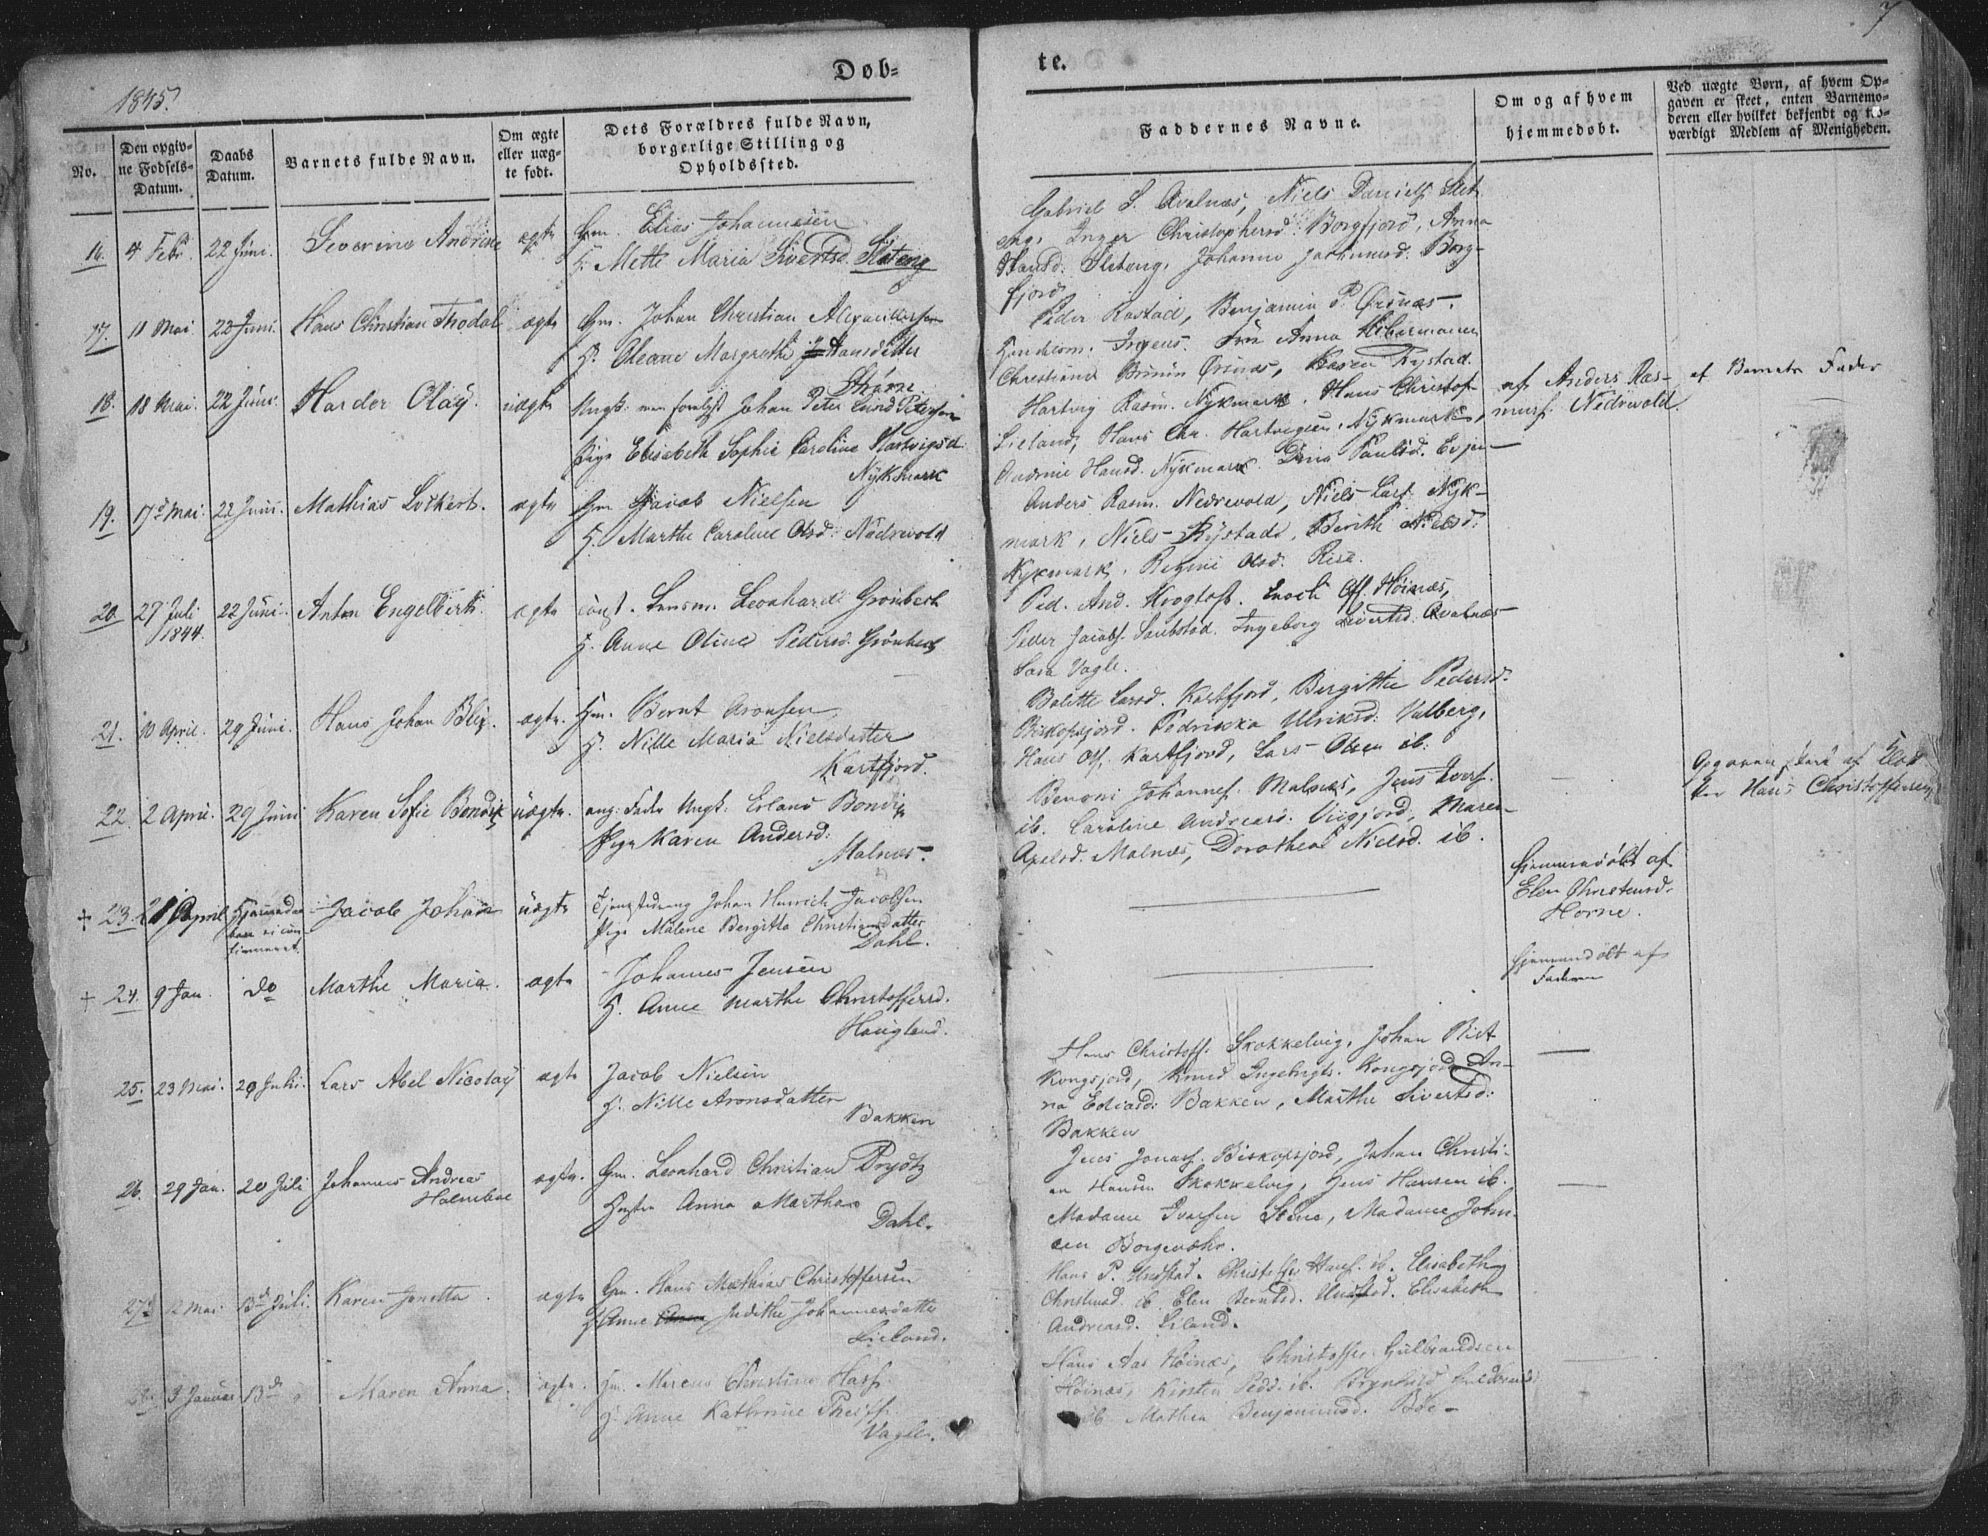 7
Døb-
te.
1845.
No.
Den opgiv-
ne Fødsels-
Datum.
Daabs
Datum.
Barnets fulde Navn.
Om ægte
eller uæg-
te født.
Dets Forældres fulde Navn,
borgerlige Stilling og
Opholdssted.
Faddernes Navne.
Om og af hvem
hjemmedøbt.
Ved uægte Børn, af hvem Op-
gaven er skeet, enten Barnemo-
deren eller hvilket bekjendt og tro-
værdigt Medlem af Menigheden.
16. 4 Febr. 22 Juni. Severine Andrine ægte Gm. Elias Johannesen
H. Mette Maria Sivertsd. Sleteng
Gabriel S. Qvalnæs, Niels Daniels. Slet
eng, Inger Christophersd. Borgfjord, Anna
Hansd. Sleteng, Johanne Jochumsd. Borg-
fjord
17. 11 Mai 22 Juni. Hans Christian Thodal ægte Gm. Johan Christian Alexandersen
H. Oleane Margrethe Hansdatter
Peder Rastad, Benjamin P. Ørsnæs.
Christiane Ørsnæs, Karen Rystad.
18. 18 Mai. 22 Juni. Harder Olay. uægte Ungk. Johan Peter Petersen
Pige Elisabeth Sophie Caroline Hartvigsd.
Nykmark
Hartvig Rasm. Nykmark, Hans Christof.
Lieland, Hans Chr. Hartvigsen Nykmark,
Andrine Hansd. Nykmark. Dina Paulsd. Evjen
af Anders Ras-
mus. Nedrevold.
af Barnets Fader
19. 17de Mai. 22 Juni. Mathias Lockert. ægte Gm. Jacob Nielsen
H. Marthe Caroline Olsd. Nedrevold
Anders Rasm. Nedrevold, Niels Lars. Nyk-
mark, Niels Rystad, Berith Nielsd.
Nykmark, Regine Olsd. Rise.
20. 27 Juli
1844. 22 Juni. Anton Engelbert. ægte const. Lensm. Leonhard Grønbech
H. Anne Oline Pedersd. Grønbech
Ped. And. Krogtoft. Enoch Høinæs,
Peder Jacobs. Sandstad. Ingeborg Sivertsd. Qvalnæs
Sara Vagle.
21. 10 April. 29 Juni. Hans Johan Blix. ægte. Gm. Bernt Aronsen
H. Nille Maria Nielsdatter
Kartfjord.
Bolette Larsd. Kartfjord, Birgitte Pedersd.
Biskopsfjord. Pedrikka Ulriksd. Valberg,
Hans Ols. Kartfjord, Lars Olsen ib.
22. 2 April. 29 Juni Karen Sofie Bendix uægte. ang. Fader Ungk. Erland Bendix
Pige Karen Andersd.
Malnæs.
Benoni Johannes. Malnæs, Jens Ivers.
ib. Caroline Andreasd. Viigfjord, Maren
Axelsd. Malnæs, Dorothea Nielsd. ib.
Opgaven skeet af
Hans Christoffersen
+ 23. 21 April Jacob Johan uægte Tjenestedreng Johan Henrich Jacobsen
Pige Malene Bergitta Christiansdatter
Dahl.
Hjemmedøbt af
Elen Christensd.
Horne.
+ 24. 9 Jan. do Marthe Maria. ægte Johannes Jensen
H. Anne Marthe Christoffersd.
Haugland.
Hjemmedøbt af
Faderen
25. 23 Mai. 20 Juli. Lars Abel Nicolay ægte Jacob Nielsen
H. Nille Aronsdatter
Bakken
Hans Christoff. Skokkelvig, Johan Rist
Kongsjord, Knud Ingebrigts. Kongsjord An-
na Eliasd. Bakken, Marthe Sivertsd.
Bakken
26. 29 Jan. 20 Juli Johannes Andreas
Holmboe ægte. Gm. Leonhard Christian Prydtz
Hustru Anna Martha
Dahl.
Jens Jonass. Biskopsjord, Johan Christi-
an Hansen Skokkelvig, Jens Hansen ib.
Madame Iversen Steine, Madame John-
sen Borgevær.
27. 12 Mai. 13de Juli. Karen Jonetta. ægte Gm. Hans Mathias Christoffersen
H. Anne Judithe Johannesdatter
Lieland.
Hans P. Unstad. Christoffer Hans. ib. Elisabeth
Christensd. ib. Elen Berntsd. Unstad. Elisabeth
Andreasd. Liland.
28. 3 Januar 13de Maren Anna. ægte. Gm. Marcus Christian Hass.
H. Anne Kathrine
Vagle.
Hans Aas Høinæs, Christoffer Gulbrandsen
Høinæs, Kirsten Pedd. ib.
ib. Mathea Benjaminsd. Bøe